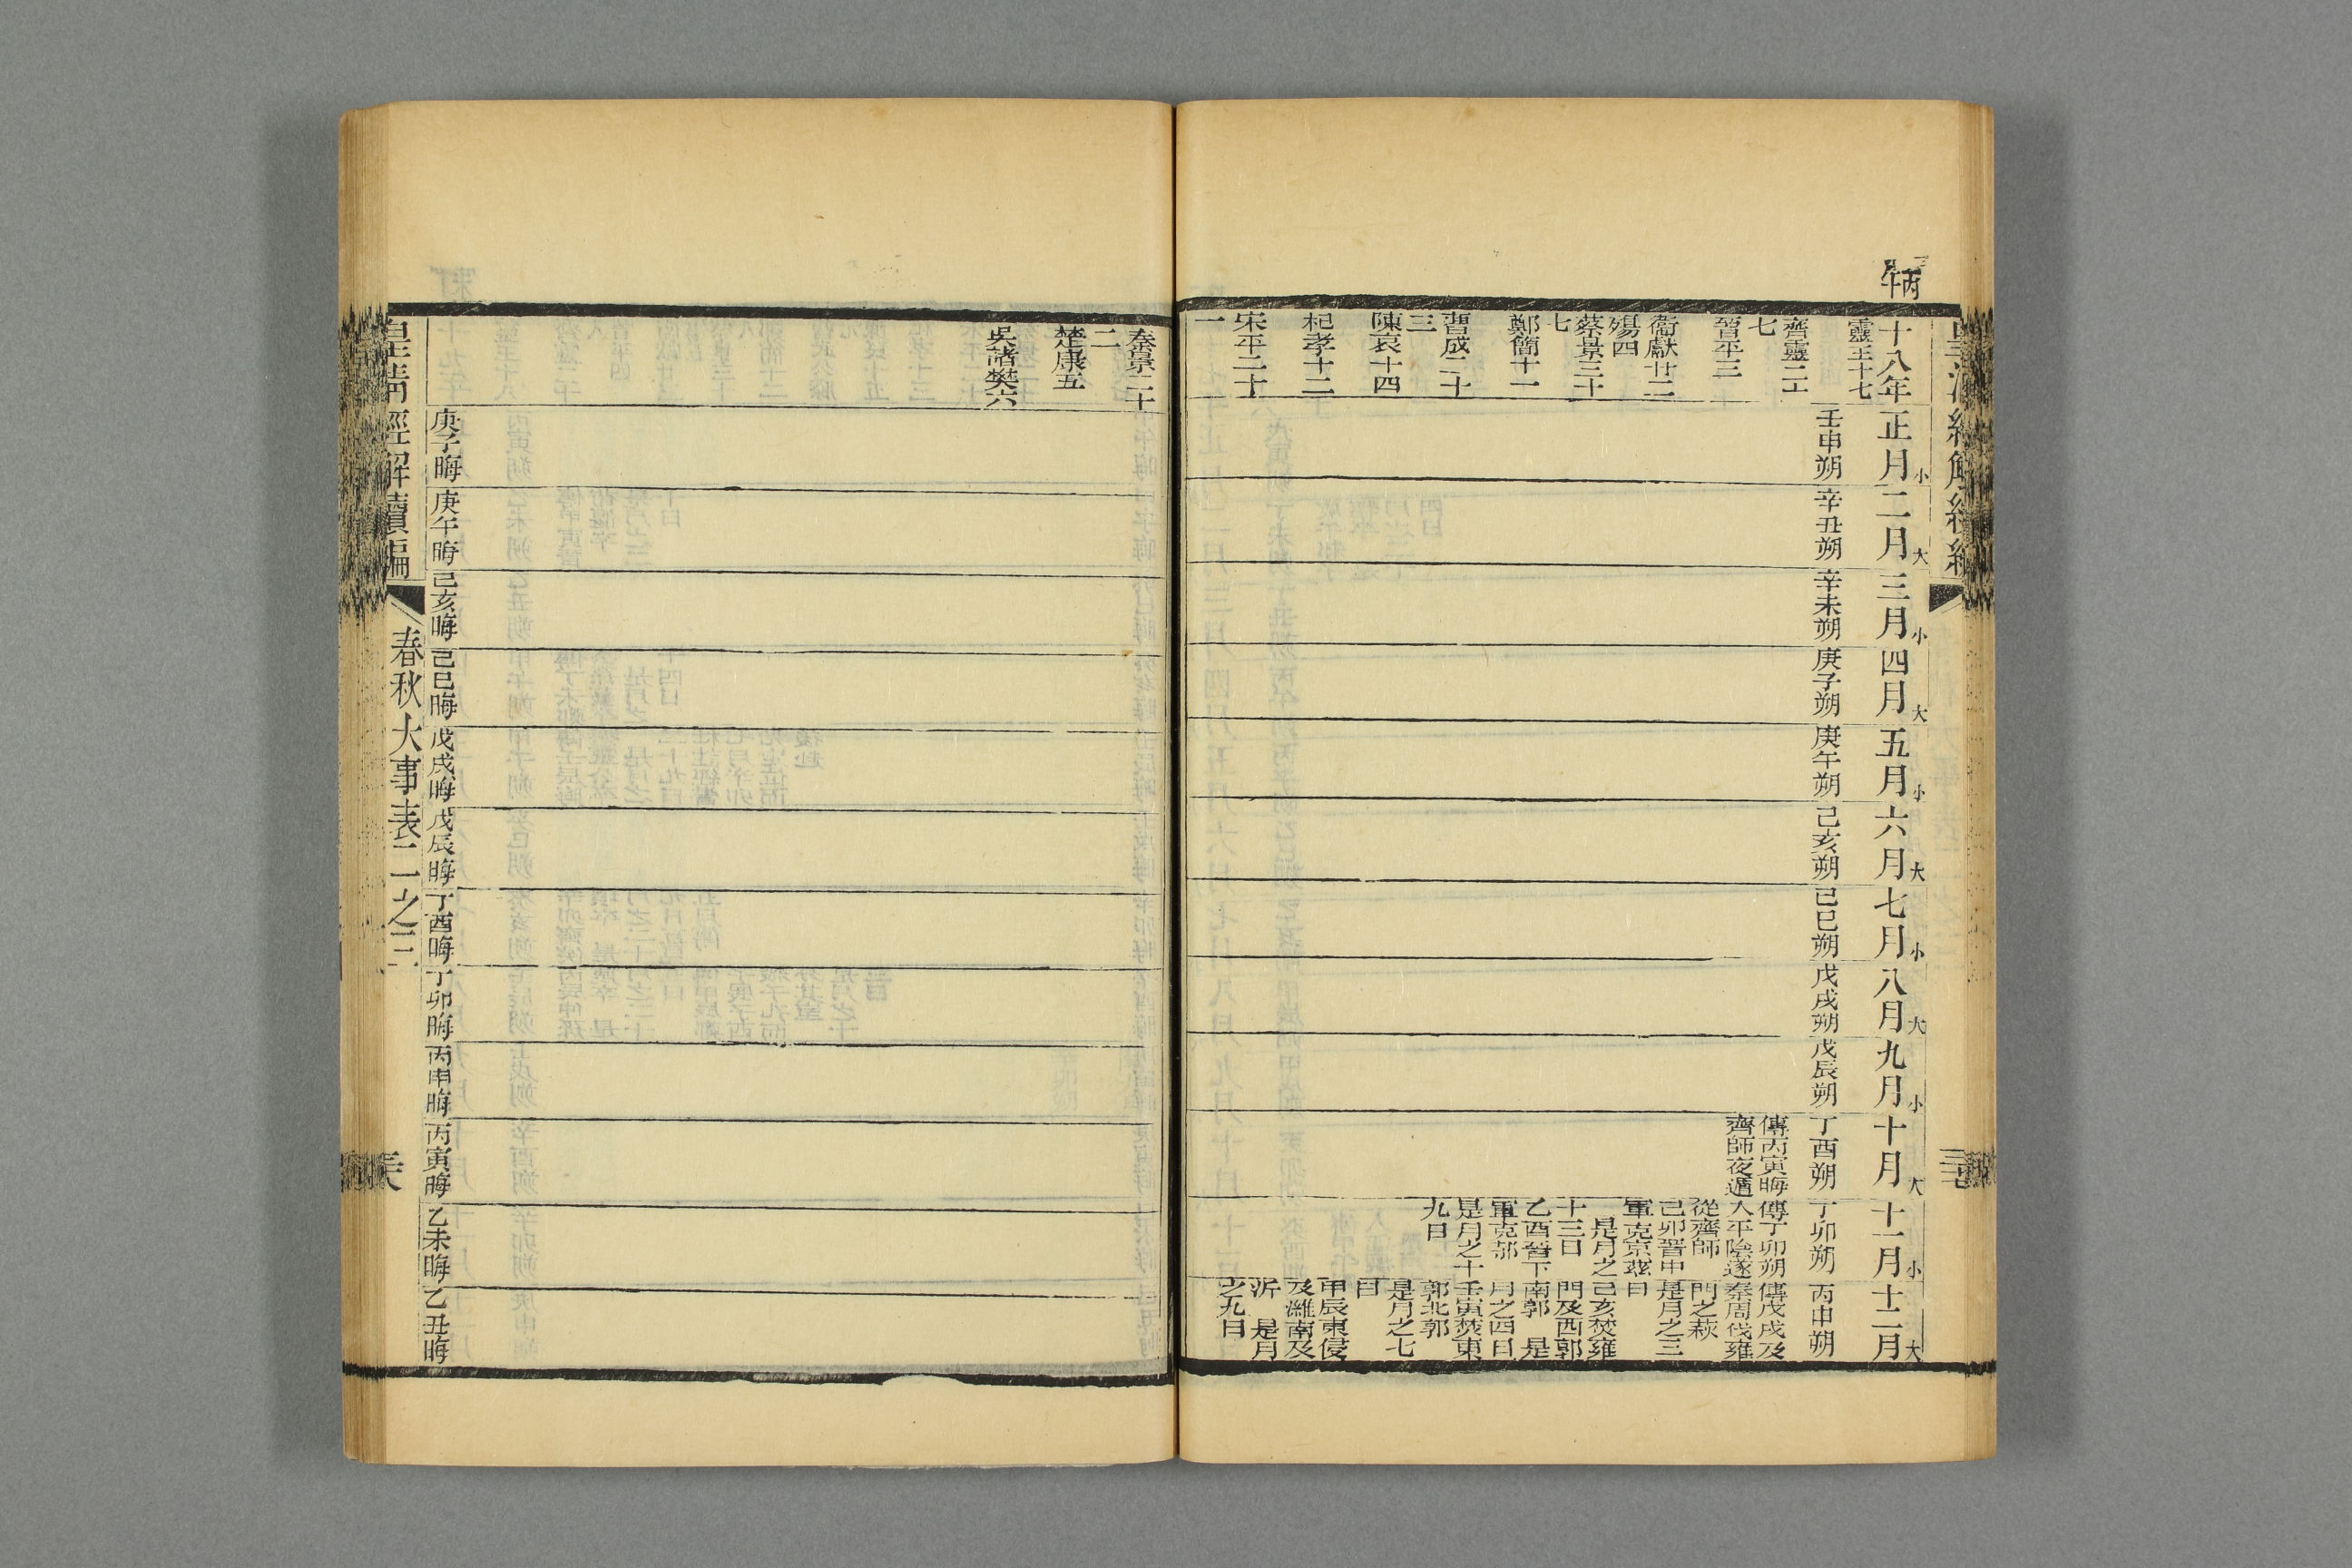 丙午
皇清經解續編
十八年
靈王十七
齊靈二十
七
晉平三
衞獻廿二
殤四
蔡景三十
七
鄭簡十一
曹成二十
三
陳哀十四
杞孝十二
宋平二十
一
正月小
壬申朔
二月大
辛丑朔
三月小
辛未朔
四月大
庚子朔
五月小
庚午朔
六月大
己亥朔
七月小
己巳朔
八月大
戊戌朔
九月小
戊辰朔
十月大
丁酉朔
傳丙寅晦
齊師夜遁
十一月小
丁卯朔
傳丁卯朔
入平陰遂
從齊師
己卯晉中
軍克京茲
是月之
十三日
乙酉晉下
軍克邿
是月之十
九日
十二月大
丙申朔
傳戊戌及
秦周伐雍
門之萩
是月之三
日
己亥焚雍
門及西郭
南郭 是
月之四日
壬寅焚東
郭北郭
是月之七
日
甲辰東侵
及濰南及
沂 是月
之九日
秦景二十
二
楚康五
吳諸樊六
庚子晦
庚午晦
己亥晦
己巳晦
戊戌晦
戊辰晦
丁酉晦
丁卯晦
丙申晦
丙寅晦
乙未晦
乙丑晦
皇清經解續編
春秋大事表二之三